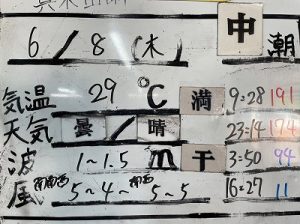 中 朝
6/8(木)
気温 29 ℃ 満 9:28 191
天気 曇/晴 23:14 174
波 1~1.5 m 干 3:50 94
風 南南西 5~4~南西 5~5 16:27 11